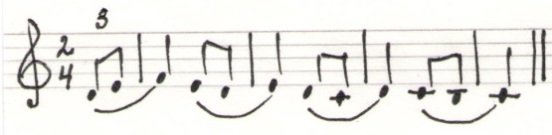 3
2
4